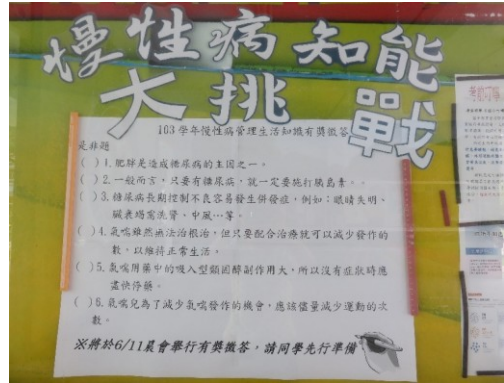 慢性病知能
大挑戰
103學年慢性病管理生活知識有獎徵答
是非題
( )1.肥胖是造成糖尿病的主因之一。
( )2.一般而言，只要有糖尿病，就一定要施打胰島素。
( )3.糖尿病長期控制不良容易發生併發症，例如：眼睛失明、
臟衰竭需洗腎、中風…等。
( )4.氣喘雖然無法根治，但只要配合治療就可以減少發作的
數，以維持正常生活。
( )5.氣喘用藥中的吸入型類固醇副作用大，所以沒有症狀時應
盡快停藥。
( )6.氣喘兒為了減少氣喘發作的機會，應該儘量減少運動的次
數。
※將於6/11晨會舉行有獎徵答，請同學先行準備